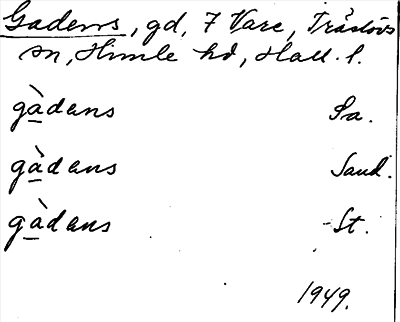 Gadens, gd, 7 Vare, Träslövs
sn, Himle hd, Hall. l.
gàdens Sa.
gàdens Sand.
gàdens St.
1949.